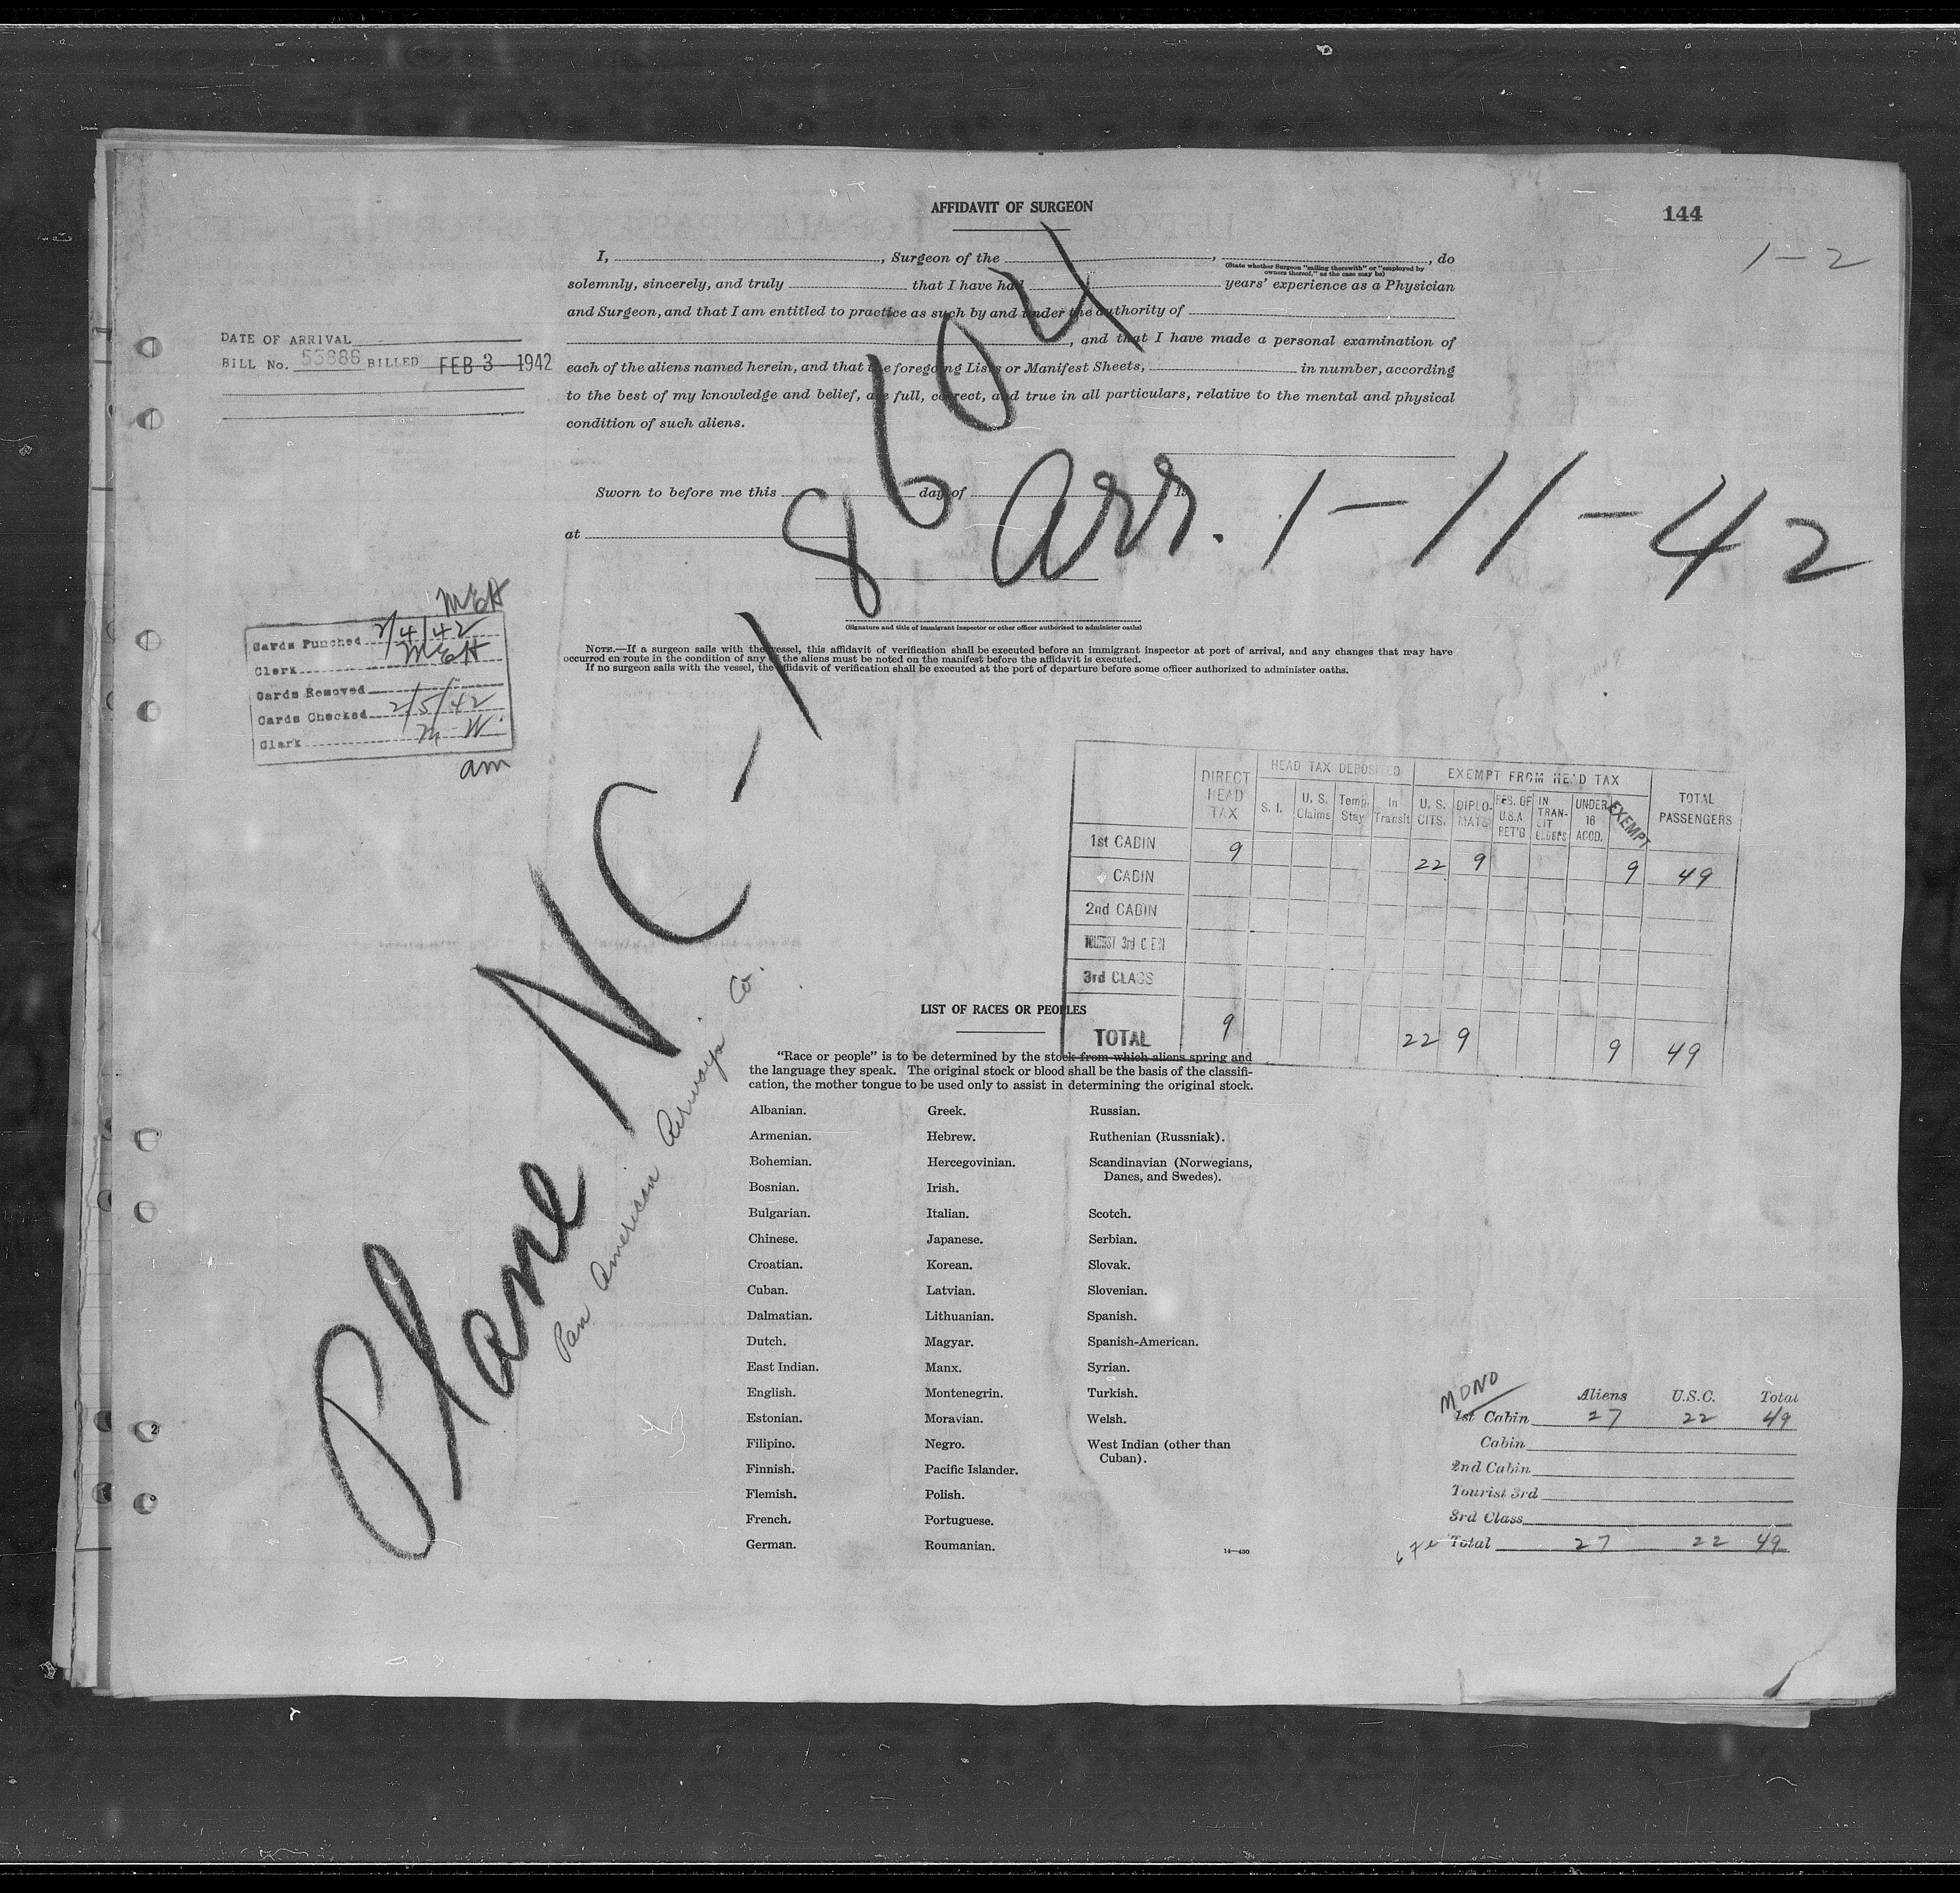 AFFIDAVIT OF SURGEON
144
1-2
I, , Surgeon of the , , do
(State whether Surgeon "sailing therewith" or "employed by
owners thereof," as the case may be)
solemnly, sincerely, and truly that I have had years' experience as a Physician
and Surgeon, and that I am entitled to practice as such by and under the authority of
, and that I have made a personal examination of
each of the aliens named herein, and that the foregoing Lists or Manifest Sheets, in number, according
to the best of my knowledge and belief, are full, correct, and true in all particulars, relative to the mental and physical
condition of such aliens.
DATE OF ARRIVAL
BILL No. 55886 BILLED FEB 3 1942
Sworn to before me this day of 19
at
Arr. 1-11-42
(Signature and title of immigrant inspector or other officer authorized to administer oaths)
NOTE.—If a surgeon sails with the vessel, this affidavit of verification shall be executed before an immigrant inspector at port of arrival, and any changes that may have
occurred en route in the condition of any of the aliens must be noted on the manifest before the affidavit is executed.
If no surgeon sails with the vessel, the affidavit of verification shall be executed at the port of departure before some officer authorized to administer oaths.
MEH
Cards Punched 2/4/42
Clerk MEH
Cards Removed
Cards Checked 2/5/42
Clerk M W
am
Plane NC-18604
Pan American Airways Co.
DIRECT HEAD TAX
HEAD TAX DEPOSITED
S. I. U. S. Claims Temp. Stay In Transit
EXEMPT FROM HEAD TAX
U. S. CITS. DIPLOMATS RES. OF U.S.A. RET'G IN TRANSIT UNDER 16 ACCD. EXEMPT
TOTAL PASSENGERS
1st CABIN 9 22 9 9 49
CABIN
2nd CABIN
TOURIST 3rd
3rd CLASS
TOTAL 9 22 9 9 49
LIST OF RACES OR PEOPLES
"Race or people" is to be determined by the stock from which aliens spring and
the language they speak. The original stock or blood shall be the basis of the classifi-
cation, the mother tongue to be used only to assist in determining the original stock.
Albanian.
Armenian.
Bohemian.
Bosnian.
Bulgarian.
Chinese.
Croatian.
Cuban.
Dalmatian.
Dutch.
East Indian.
English.
Estonian.
Filipino.
Finnish.
Flemish.
French.
German.
Greek.
Hebrew.
Hercegovinian.
Irish.
Italian.
Japanese.
Korean.
Latvian.
Lithuanian.
Magyar.
Manx.
Montenegrin.
Moravian.
Negro.
Pacific Islander.
Polish.
Portuguese.
Roumanian.
Russian.
Ruthenian (Russniak).
Scandinavian (Norwegians,
Danes, and Swedes).
Scotch.
Serbian.
Slovak.
Slovenian.
Spanish.
Spanish-American.
Syrian.
Turkish.
Welsh.
West Indian (other than
Cuban).
14—430
MONO
Aliens U.S.C. Total
1st Cabin 27 22 49
Cabin
2nd Cabin
Tourist 3rd
3rd Class
Total 27 22 49
2